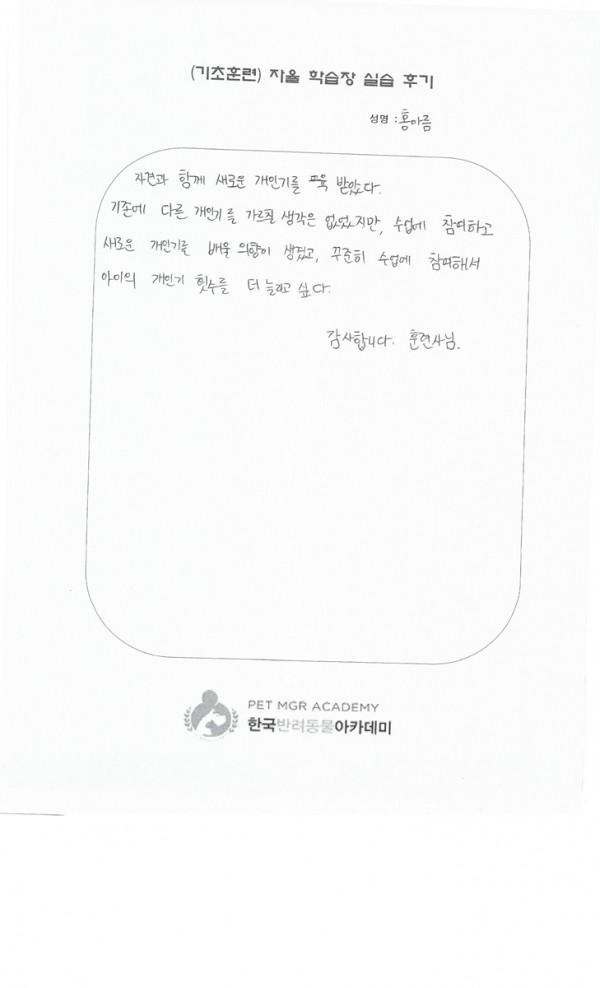 (기초훈련) 자율 학습장 실습 후기
성명 : 홍아름
자견과 함께 새로운 개인기를 교육 받았다.
기존에 다른 개인기를 가르칠 생각은 없었지만, 수업에 참여하고
새로운 개인기를 배울 의향이 생겼고, 꾸준히 수업에 참여해서
아이의 개인기 횟수를 더 늘리고 싶다.
감사합니다. 훈련사님.
PET MGR ACADEMY
한국반려동물아카데미